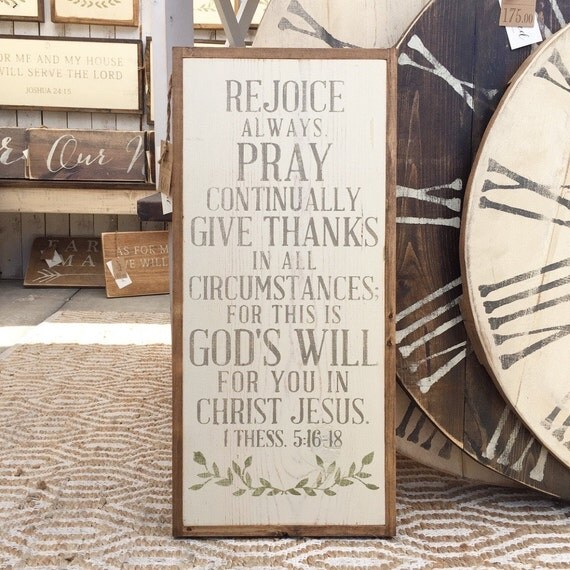 175.00
FOR ME AND MY HOUSE
WILL SERVE THE LORD
JOSHUA 24:15
Our
REJOICE
ALWAYS.
PRAY
CONTINUALLY,
GIVE THANKS
IN ALL
CIRCUMSTANCES;
FOR THIS IS
GOD'S WILL
FOR YOU IN
CHRIST JESUS.
1 THESS. 5:16-18
AS FOR M
WE WILL